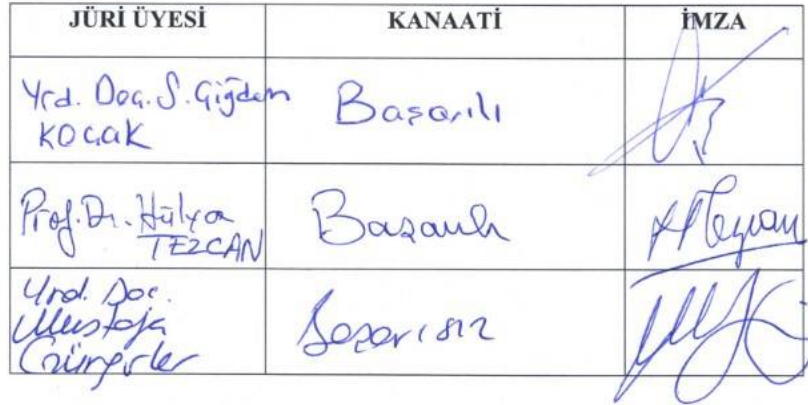 JÜRİ ÜYESİ KANAATİ İMZA
Yrd. Doç. S. Çiğdem
KOÇAK
Başarılı
Prof. Dr. Hülya
TEZCAN
Başarılı
Yrd. Doç.
Mustafa
Başarısız